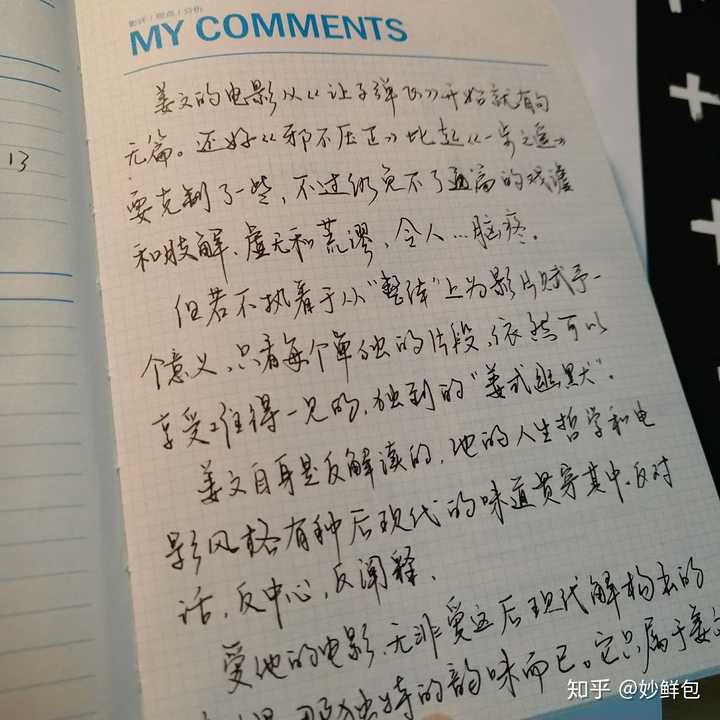 影评 | 观点 | 分析
MY COMMENTS
13
姜文的电影从《让子弹飞》开始就有句
无篇。还好《邪不压正》比起《一步之遥》
要克制了一些，不过仍免不了通篇的戏谑
和肢解、虚无和荒谬，令人…脑疼。
但若不执着于从“整体”上为影片赋予一
个意义，只看每个单独的片段，依然可以
享受难得一见的，独到的“姜式幽默”。
姜文自身是反解读的，他的人生哲学和电
影风格有种后现代的味道贯穿其中，反对
话，反中心，反阐释。
爱他的电影，无非爱这后现代解构主的
独特的韵味而已。它只属于姜文
知乎 @妙鲜包